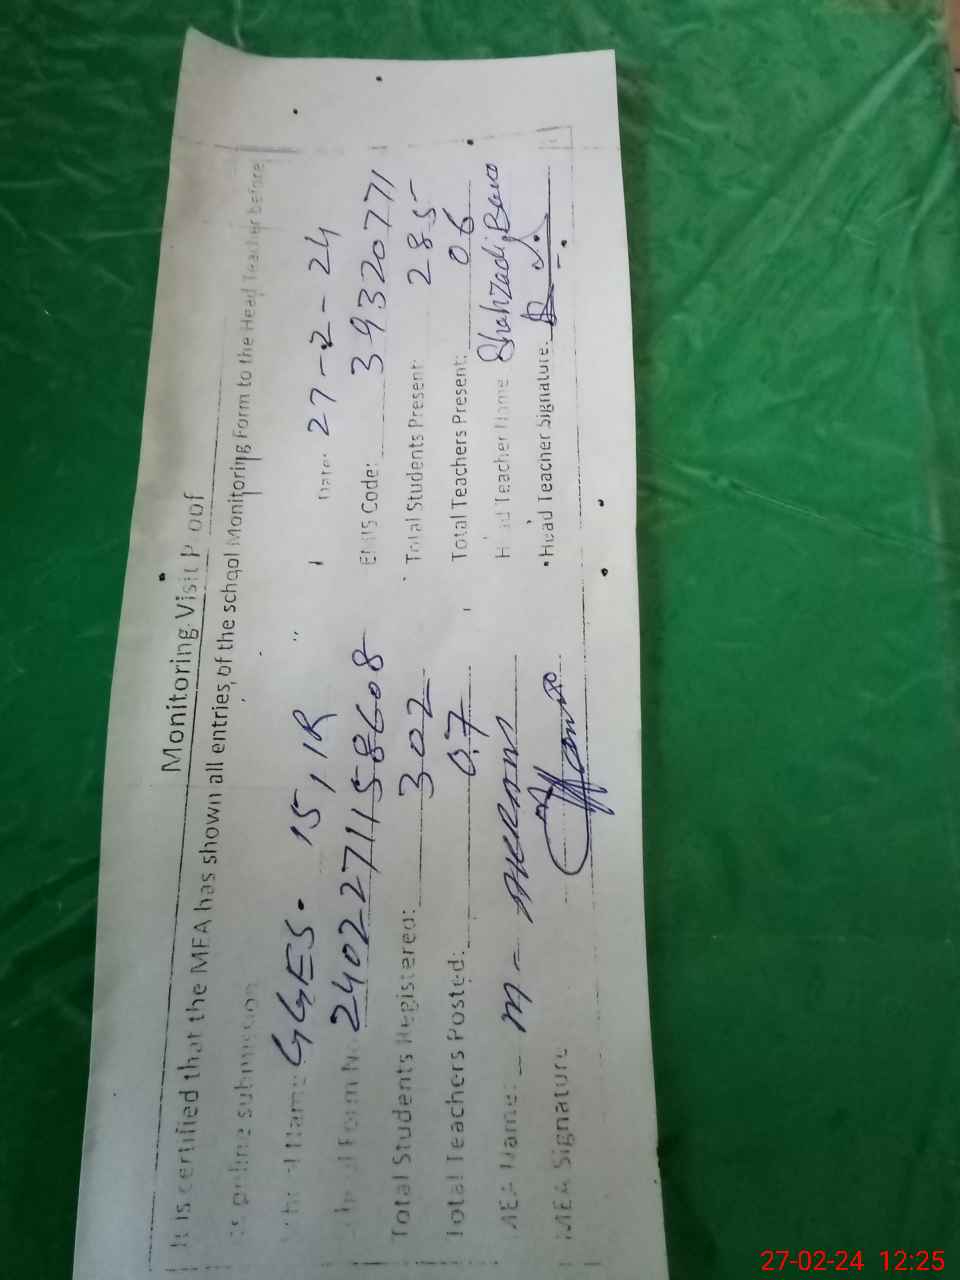 Monitoring Visit Proof
It is certified that the MEA has shown all entries of the school Monitoring Form to the Head Teacher before
its online submission
School Name GGES. 15/1R Date: 27-2-24
School Form No 2402271158608 EMIS Code: 39320771
Total Students Registered: 302 Total Students Present: 285
Total Teachers Posted: 07 Total Teachers Present: 06
MEA Name: M-AKRAM Head Teacher Name Shahzadi Bano
MEA Signature Head Teacher Signature:
27-02-24 12:25